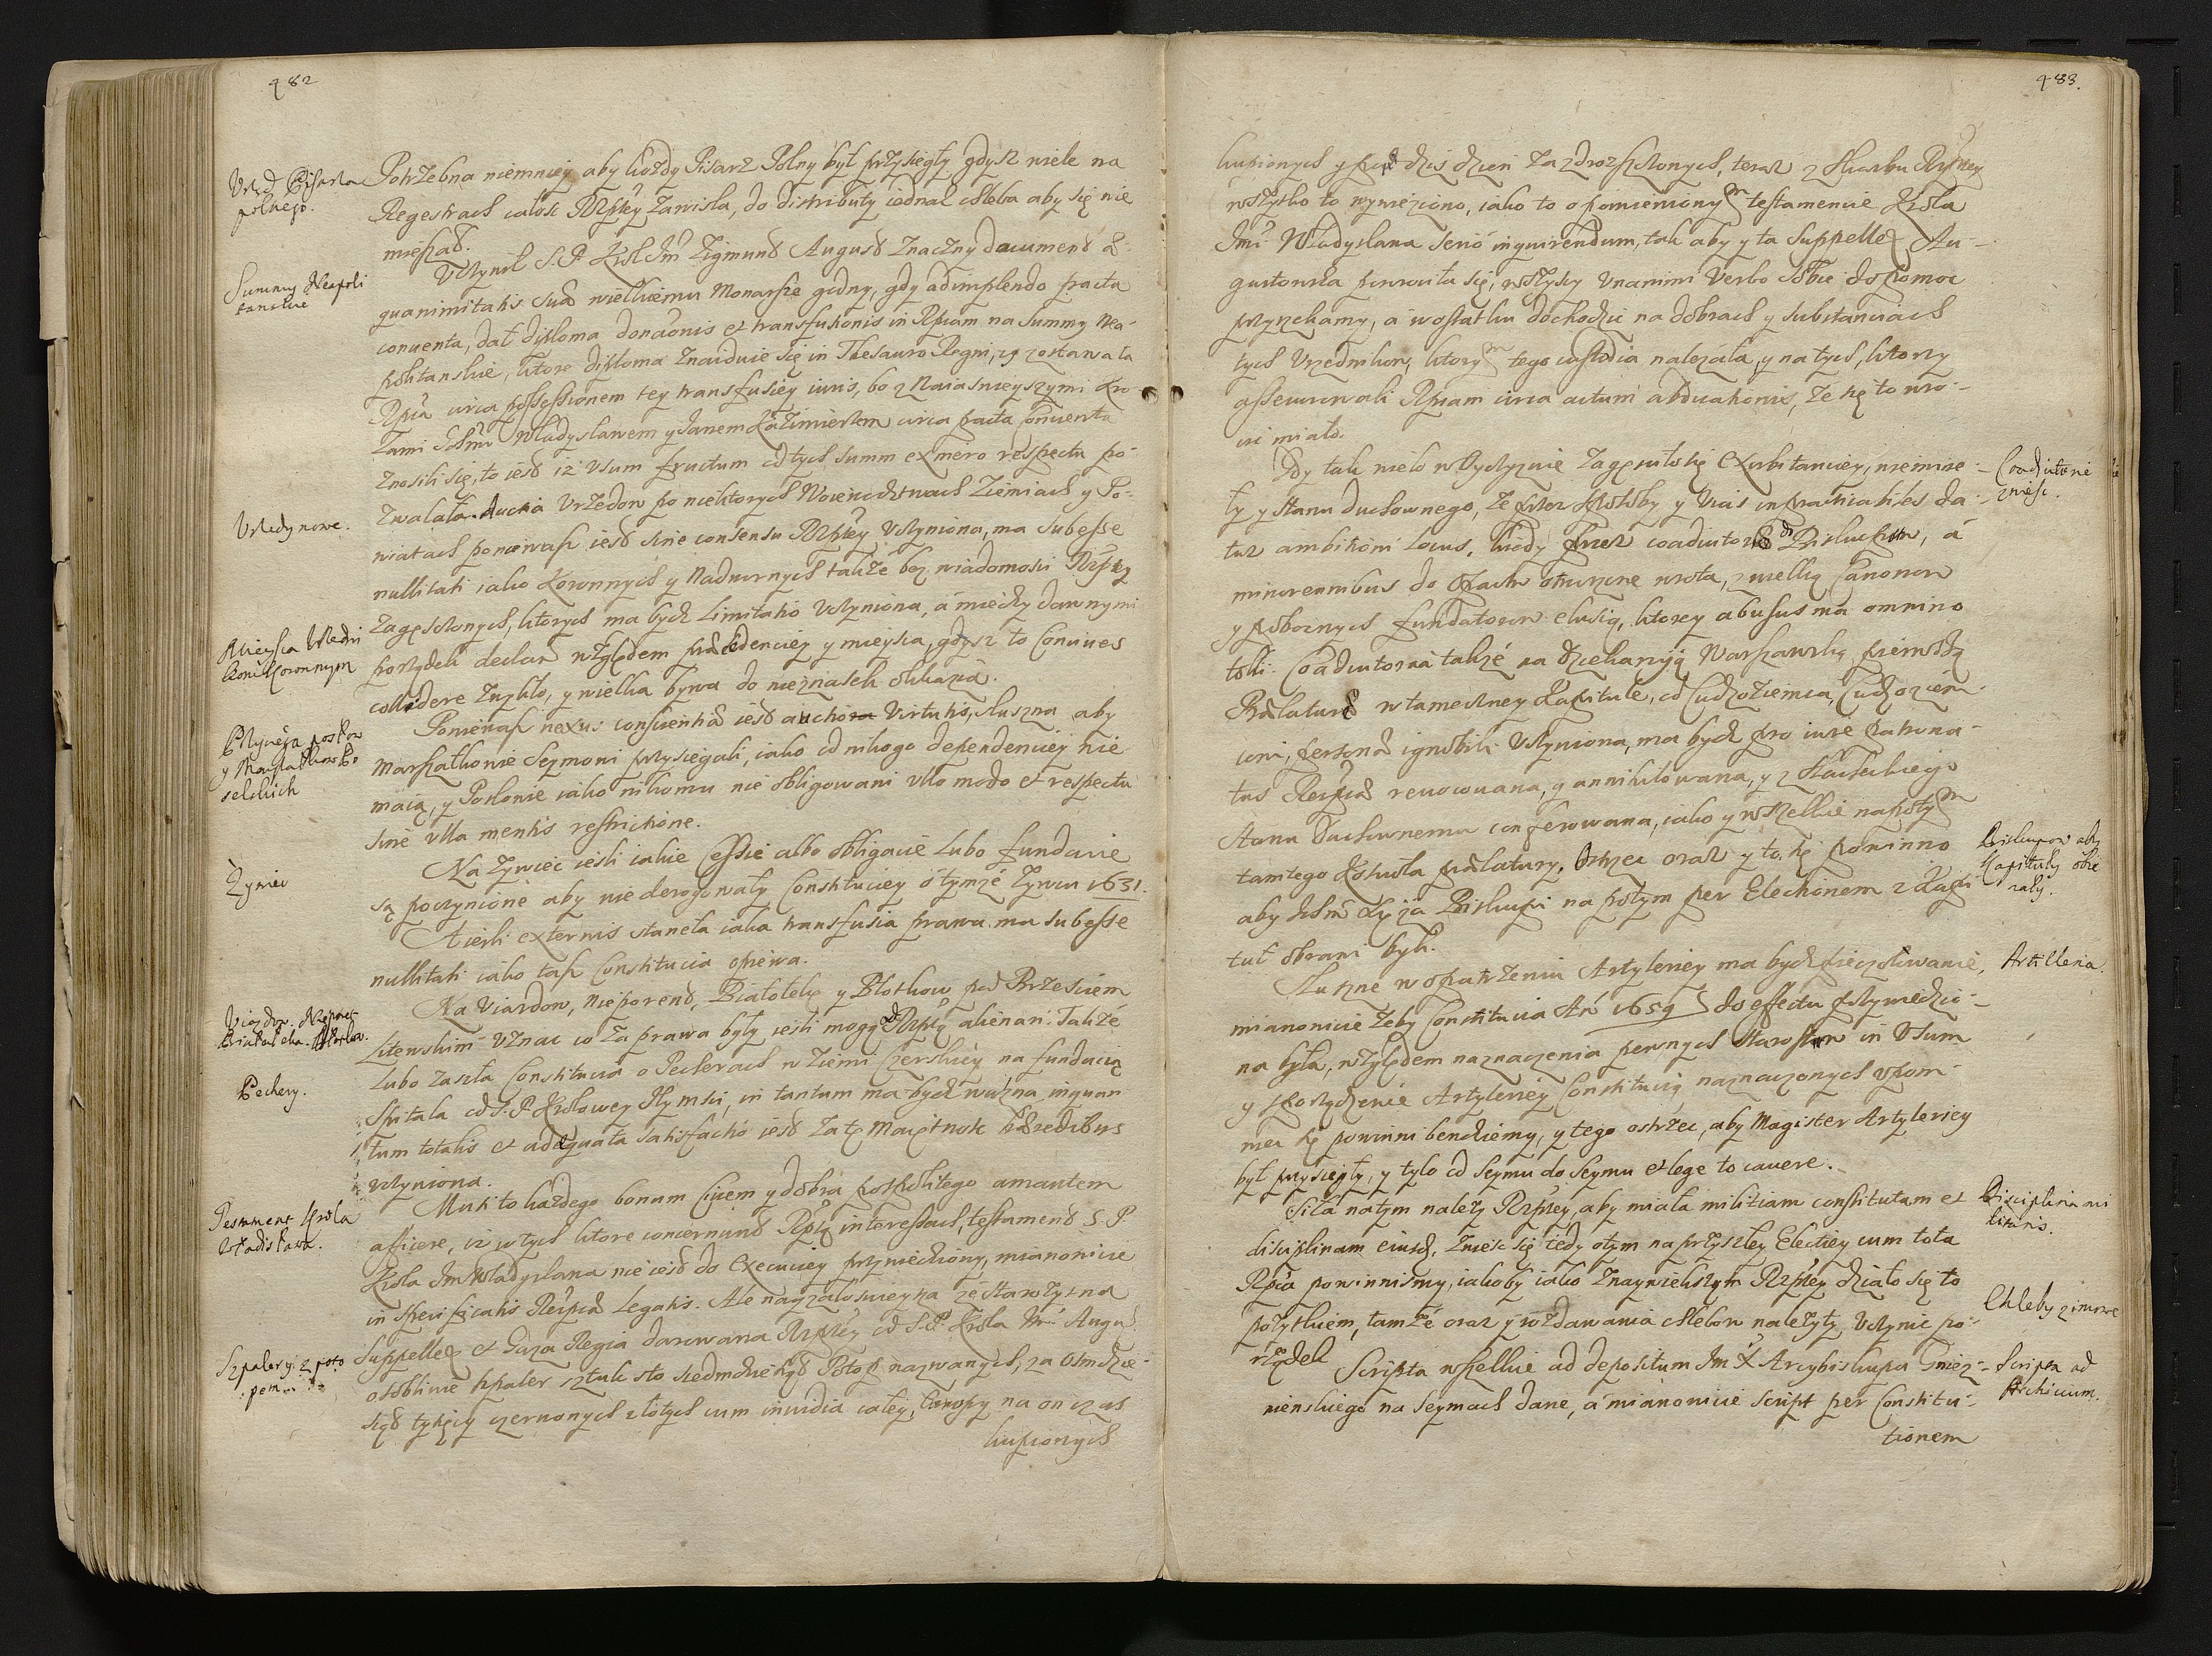 482
Urząd Pisarza
polnego.
Potrzebna niemniey aby każdy Pisarz Polny był przysięgły gdysz wiele na
Regestrach całość Rzptey zawisła, do distributy iednak chleba aby się nie
mieszał.
Summy Neapoli
tanskie
Uczynił S. P. Krol Im Zigmund August znaczny documend æ-
quanimitatis suæ wielkiemu Monarsze godny, gdy adimplendo pacta
conventa, dał diploma donaonis et transfusionis in Rpcam na Summy Nea-
politanskie, ktore diploma znayduie się in Thesauro Regni, zostawała
Rpca circa possessionem tey transfusiey iuris, bo z Naiasnieyszymi Kro-
lami Ichmć Władysławem y Janem Kazimierzem circa pacta Conventa
znosili się, to iesd iż usum fructum od tych summ ex mero respectu po-
Urzędy nowe.
zwalała. Auctia Urzędow po niektorych Woiewodztwach Ziemiach y Po-
wiatach ponieważ iesd sine consensu Rzptey uczyniona, ma subesse
nullitati iako Koronnych y Nadwornych także bez wiadomosci Rzptey
zagęsczonych, ktorych ma bydź limitatio uczyniona, á między dawnymi
Mieysca Urzędni
kom Koronnym
porządek declar względem præcedenciey y mieysca, gdysz to Convives
collidere zwykło, y wielka bywa do nieznasek okkazia.
Przysięga posłow
y Marszałkow Po
selskich
Ponieważ nexus conscientiæ iesd auctora virtutis, słuszna aby
Marszałkowie Seymowi przysięgali, iako od nikogo dependenciey nie
maią, y Posłowie iako nikomu nie obligowani ullo modo et respectu
sine ulla mentis restrictione.
Żywiec
Na Zywiec iesli iakie Cessie albo obligacie lubo fundacie
są poczynione aby nie derogowały Constituciey o tymże Zywcu 1631.
A iesli externis stanęła iaka transfusia prawa ma subesse
nullitati iako tasz Constitucia opiewa.
Uiazdow. Nieporet
Białałęka.
Na Uiazdow, Nieporend, Białołękę y Błotkow pod Brzesciem
Litewskim uznać co za prawa były iesli mogą od Rzptey alienari. Także
Peckery.
lubo zaszła Constitucia o Peckerach w Ziemi Czerskiey na fundacią
Szpitala od S. P. Krolowey Iymsci, in tantum ma bydź ważna, inquan
tum totalis et adæquata satisfactio iesd za tę Maiętnosc hæredibus
uczyniona.
Testament Krola
Władisława.
Musi to każdego bonum Civem y dobra pospolitego amantem
afficere, iż w tych ktore concernund Rptą interessach, testamend S. P.
Krola Im Władysława nie iesd do Execuciey przywiedziony, mianowicie
in specificatis Reipcæ Legatis. Ale nayżałosnieysza że starożytna
Suppellex et Gaza Regia darowana Rzptey od S. P. Krola Im Augu
Szpalery z poto
pem
osobliwie szpaler sztuk sto siedmdziesiąt Potop nazwanych, za osmdzie-
siąt tysięcy czerwonych złotych cum invidia całey Europy na on czas
kupionych
483.
kupionych y pod dzis dzien za zdrozszonych, teraz z Skarbu Rzptey
wszytko to wywieziono, iako to o pomienionym testamencie Krola
Imć Władysława serio inquirendum, tak aby y ta Suppellex Au-
gustowska powrociła się, wszyscy unanimi verbo sobie do pomoc
przyrzekamy, a w ostatku dochodzić na dobrach y substanciach
tych Urzędnikow, ktorym tego custodia należała, y na tych, ktorzy
assecurowali Rpcam circa actum abdicationis, że się to wro-
cić miało.
Coadiutorie
znieść.
Gdy tak wiele w Oyczyznie zagęsciło się Exorbitanciey, nie minę-
ły y stanu duchownego, że przez sposoby y viæ inpracticabiles da-
tur ambitioni locus, kiedy przez coadiutorie Biskupstw, á
minorennibus do Opactw otworzone wrota, z wielką Canonow
y pobożnych fundatorow elusią, ktorey abusus ma omnino
tolli. Coadiutoria także na dziekanyią Warszawską pierwszą
Prælaturę w tameczney Kapitule, od Cudzoziemca, Cudzoziem-
cowi, personæ ignobili uczyniona, ma bydź pro iure Patrona-
tus Reipcæ revocowana, y annihilowana, y z Szlacheckiego
stanu duchownemu conferowana, iako y wszelkie napotym
Biskupow aby
Kapituły obie
rały.
tamtego Koscioła prælatury. Ostrzec oraz y to, się powinno
aby Ichmć Xięża Biskupi na potym per Electionem z Kapi
tuł obrani byli.
Artilleria.
Słuszne w opatrzeniu Artyleriey ma bydź pieczołowanie,
mianowicie żeby Constitucia Añ 1659 do effectu przywiedzio-
na była, względem naznaczenia pewnych Starostw in Usum
y sporządzenie Artyleriey Constitucią naznaczonych upom-
nieć się powinni bendziemy, y tego ostrzec, aby Magister Artyleriey
był przysięgły, y tylo od Seymu do Seymu et lege to cavere.
Disciplina mi
litaris.
Siła na tym należy Rzptey, aby miała militiam constitutam et
disciplinam eiusd, znieść się tedy o tym na przyszłey Electiey cum tota
Rpca powinnismy, iakoby iako z naywiekszym Rzptey działo się to
Chleby zimowe
pożytkiem, tamże oraz y rozdawania chlebow należyty uczynić po-
rządek
Scripta ad
Archivum.
Scripta wszelkie ad depositum Im X Arcybiskupa Gniez-
nienskiego na Seymach dane, á mianowicie script per Constitu-
tionem